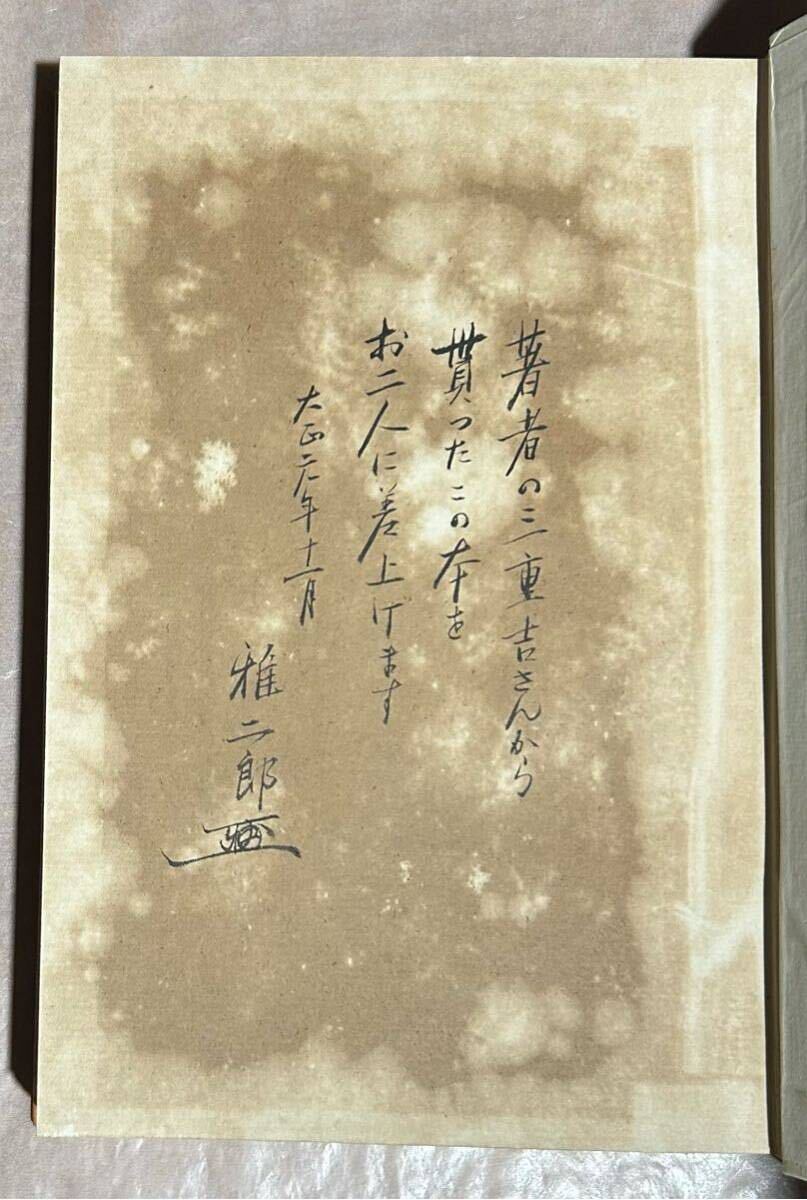 著者の三重吉さんから
貰ったこの本を
お二人に差上げます
大正六年十一月
雅二郎